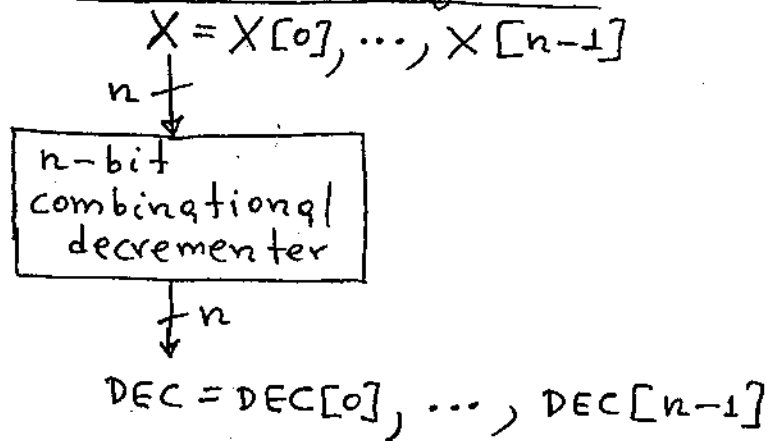 X = X[0], ..., X[n-1]
n
n-bit
combinational
decrementer
n
DEC = DEC[0], ..., DEC[n-1]